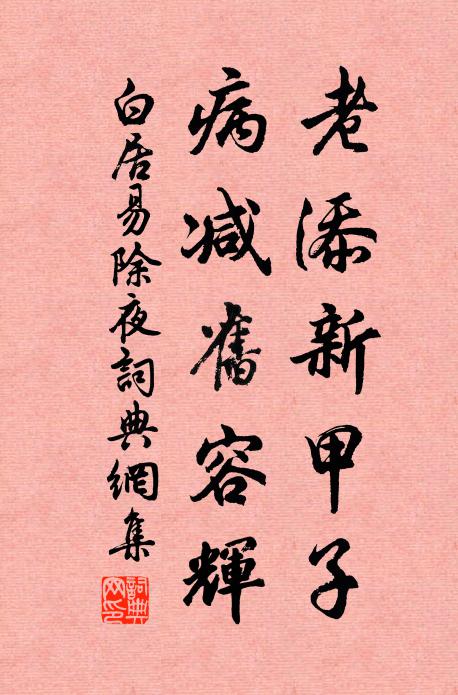 老添新甲子
病減舊容輝
白居易除夜詞典網集
詞典網印